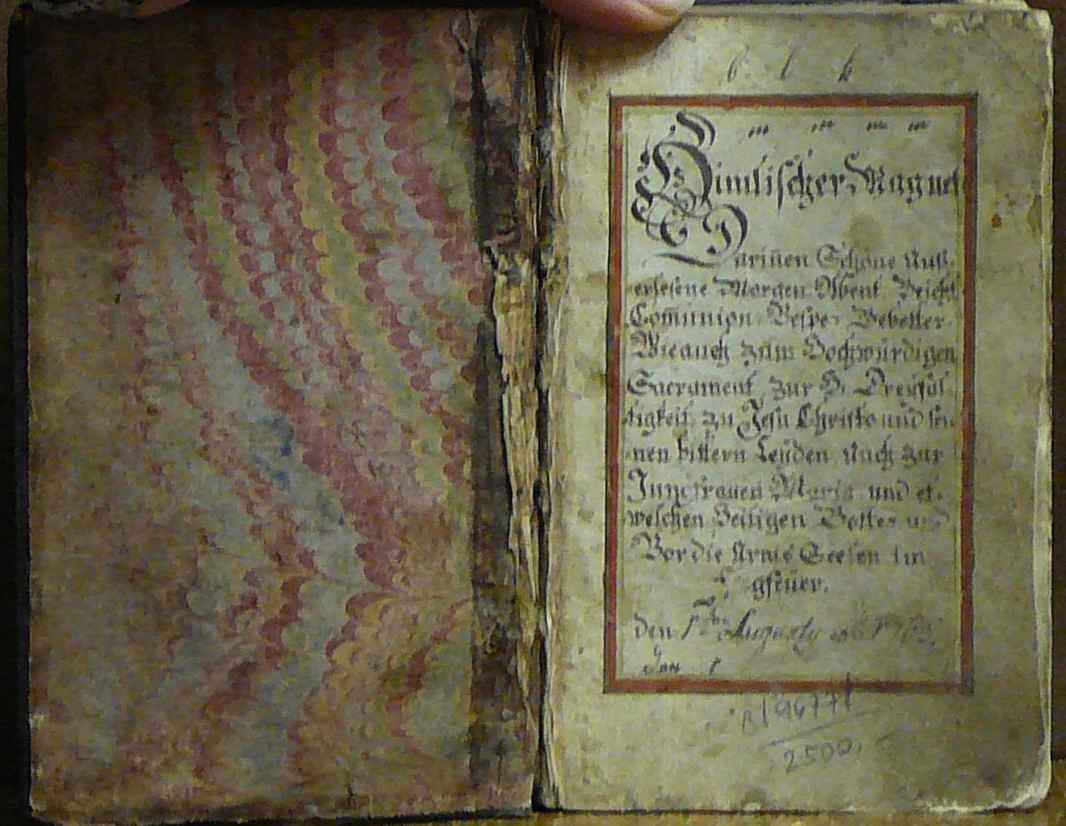 b l k
Himlischer Magnet
Darinen Schöne Auß-
erlesene Morgen Abent Beicht
Communion Vesper Gebetter
Wieauch zum Hochwürdigen
Sacrament, zur H. Dreyfal-
tigkeit, zu Jesu Christo und sei-
nen bittern Leyden Auch zur
Jungfrauen Maria und et-
welchen Heiligen Gottes und
Vor die Arme Seelen im
gfeüer.
den 1ten Augusty
2500,-